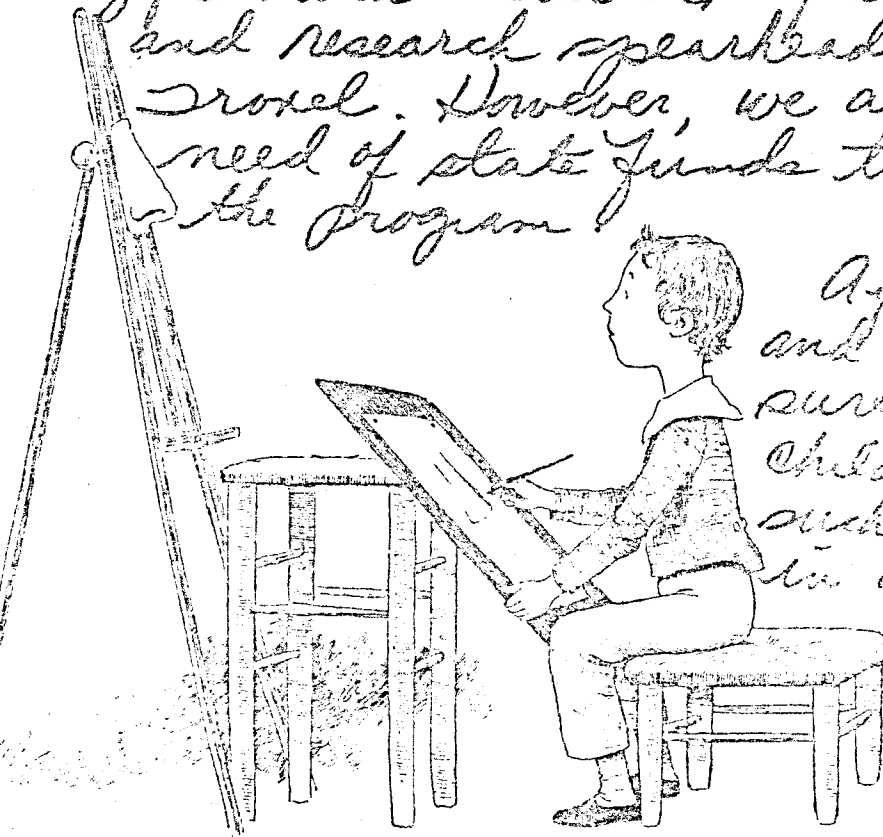 and research spearhead
Troxel. However, we a
need of state funds t
the program.
and
sure
Child
such
in a